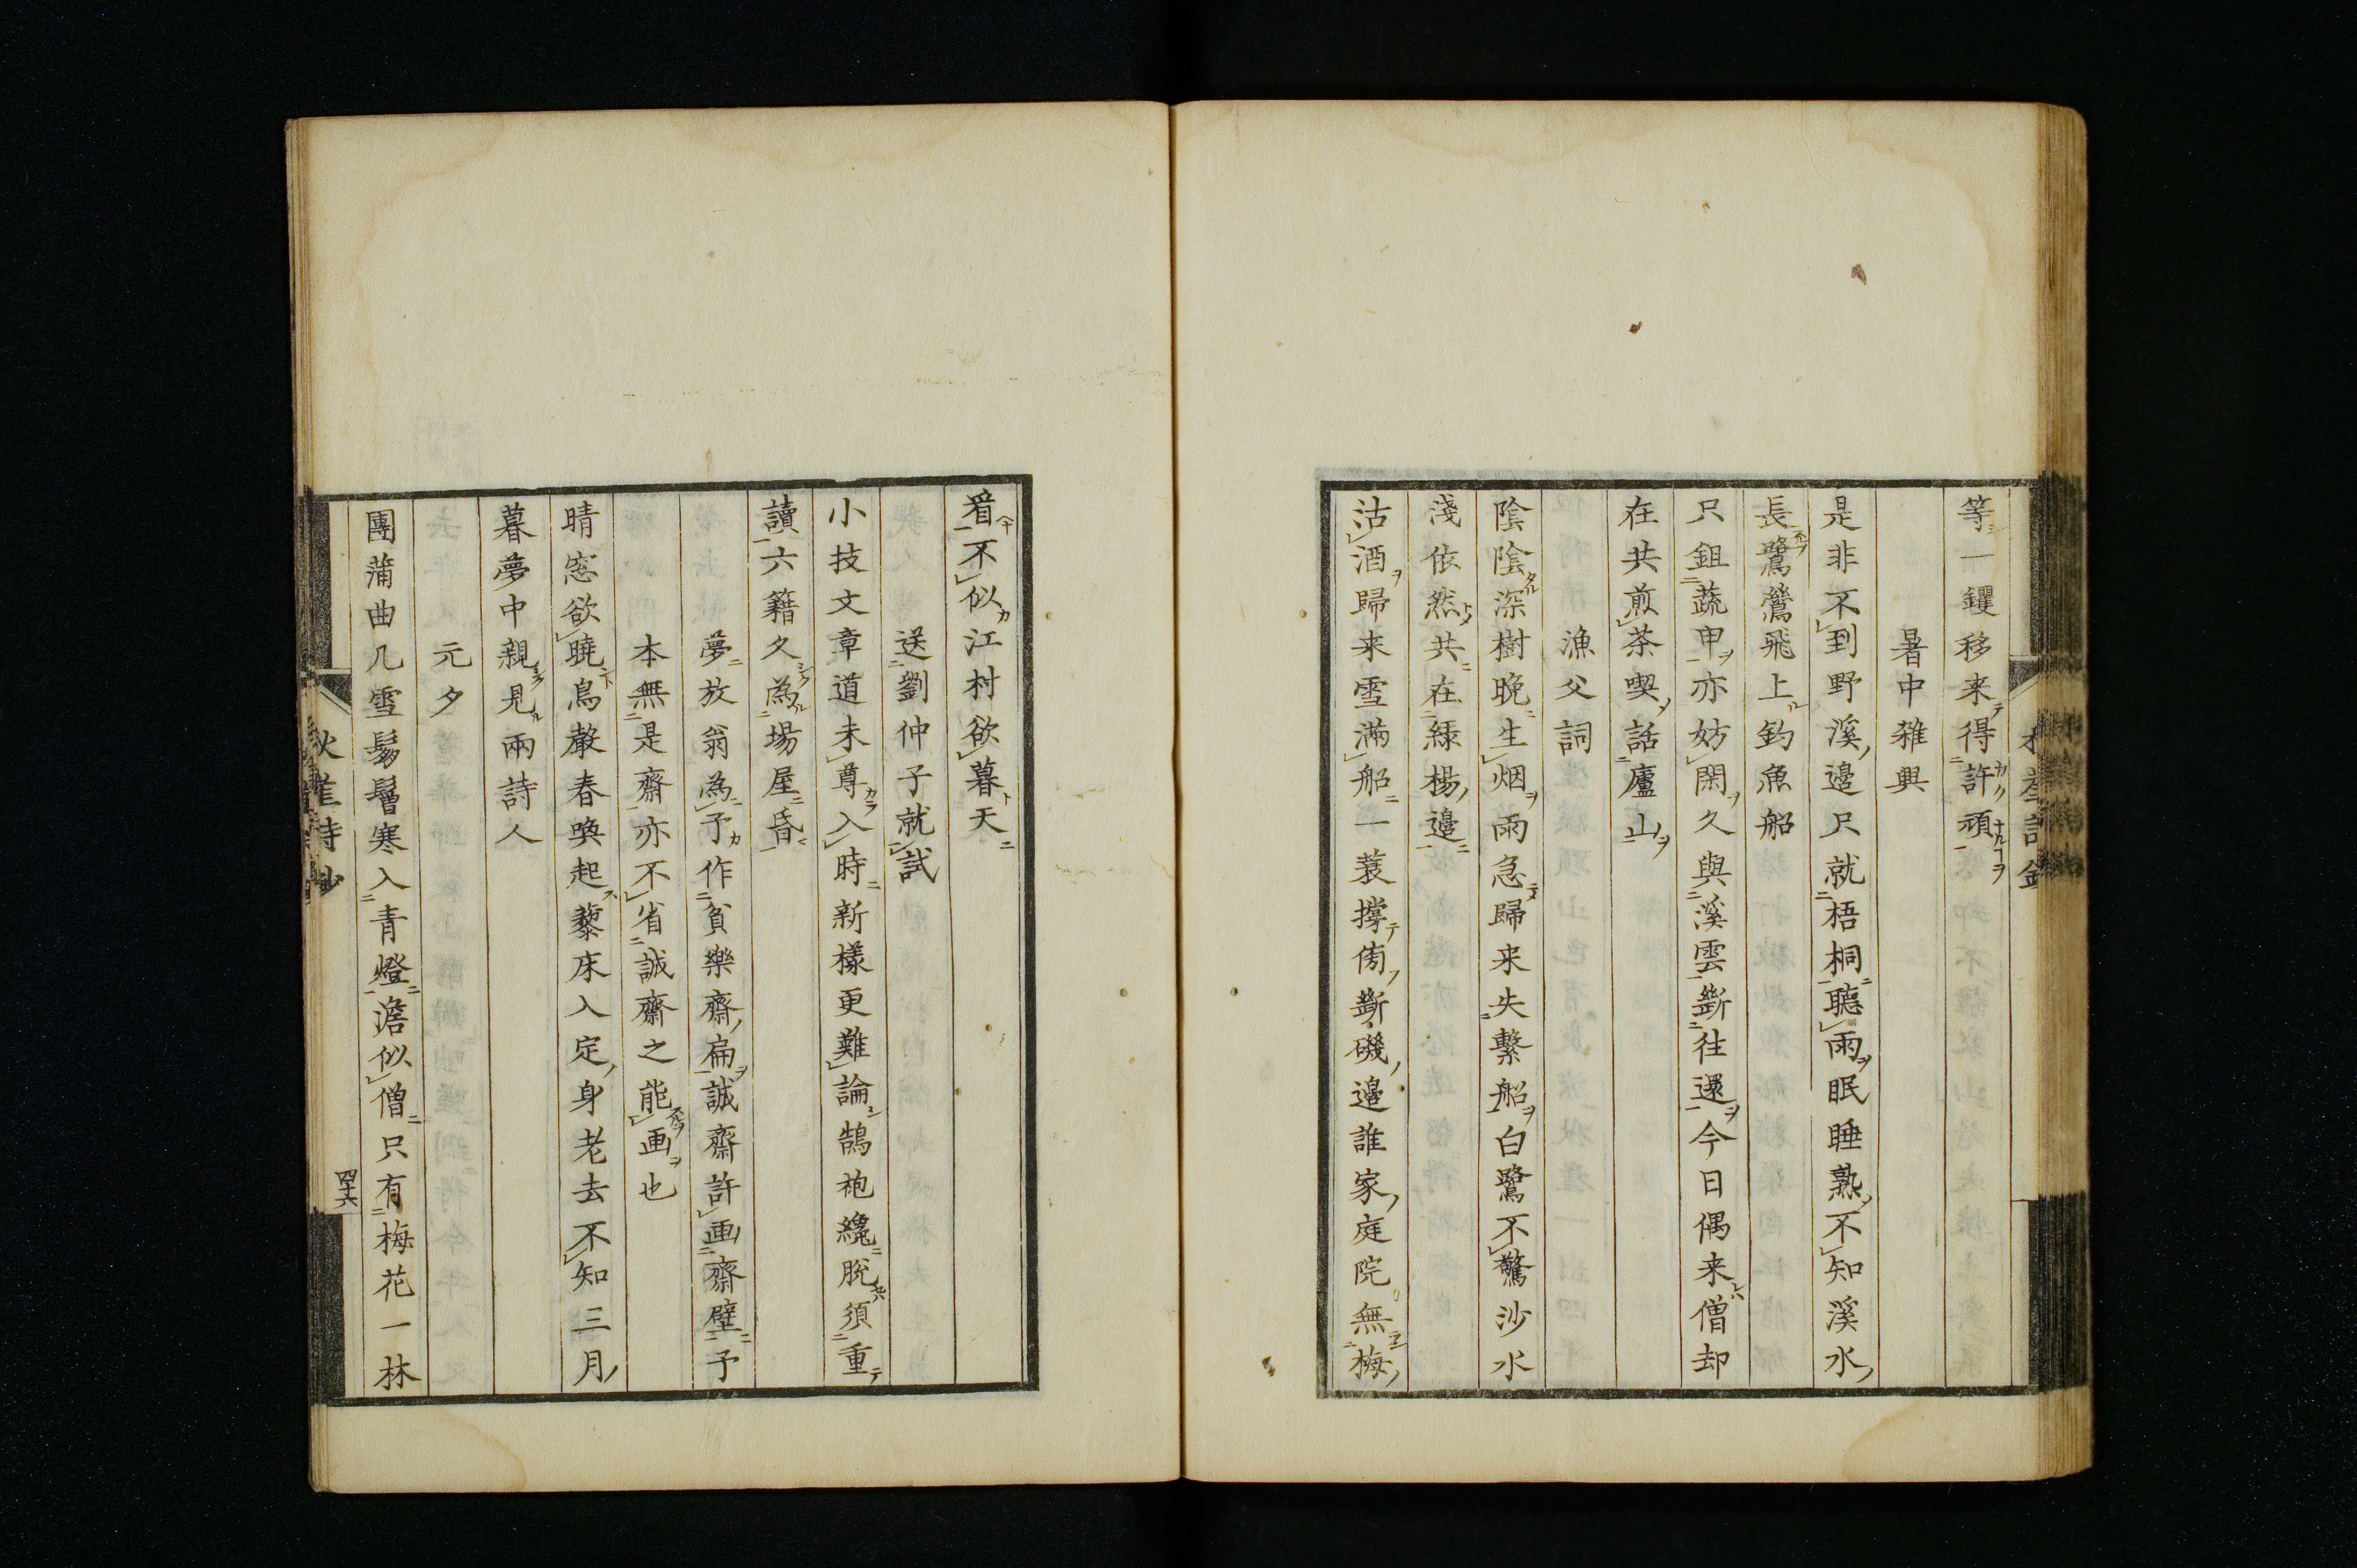 等一钁移来得許頑
暑中雑興
是非不到野溪邉只就梧桐聽雨眠睡熟不知溪水
長鷺鶿飛上釣魚船
只鉏蔬甲亦妨閑久與溪雲斷往還今日偶来僧却
在共煎茶喫話廬山
漁父詞
陰陰深樹晩生烟雨急歸来失繋船白鷺不驚沙水
淺依然共在緑楊邉
沽酒歸来雪滿船一蓑撐傍斷磯邉誰家庭院無梅
看不似江村欲暮天
送劉仲子就試
小技文章道未尊入時新樣更難論鵠袍纔脫須重
讀六籍久為塲屋昏
夢放翁為予作貧樂齋扁誠齋許画齋壁予
本無是齋亦不省誠齋之能画也
晴窓欲曉鳥聲春喚起藜床入定身老去不知三月
暮夢中親見兩詩人
元夕
團蒲曲几雪鬅鬙寒入青燈澹似僧只有梅花一林
秋崖詩鈔
四十六